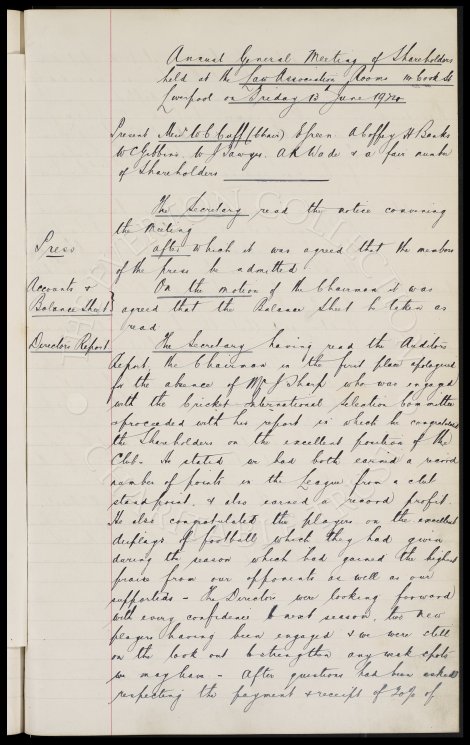 Annual General Meeting of Shareholders
held at the Law Association Rooms 14 Cook St
Liverpool on Friday 13th June 1924
Present Messrs W C Cuff (Chair) E Green A Coffey H Banks
W C Gibbins, W J Sawyer, A R Wade & a fair number
of Shareholders
The Secretary read the notice convening
the Meeting
Press
after which it was agreed that the members
of the press be admitted
Accounts &
On the motion of the Chairman it was
Balance Sheet
agreed that the Balance Sheet be taken as
read
Directors Report
The Secretary having read the Auditors
report, the Chairman in the first place apologised
for the absence of Mr J Sharp who was engaged
with the Cricket International Selection Committee
& proceeded with his report in which he congratulated
the Shareholders on the excellent position of the
Club. He stated we had both earned a record
number of points in the League from a club
standpoint, & also earned a record profit.
He also congratulated the players on the excellent
displays of football which they had given
during the season which had gained the highest
praise from our opponents as well as our
supporters - The Directors were looking forward
with every confidence to next season, two new
players having been engaged & we were still
on the look out to strengthen any weak spots
we may have - After questions had been asked
respecting the payment & receipt of 20% of